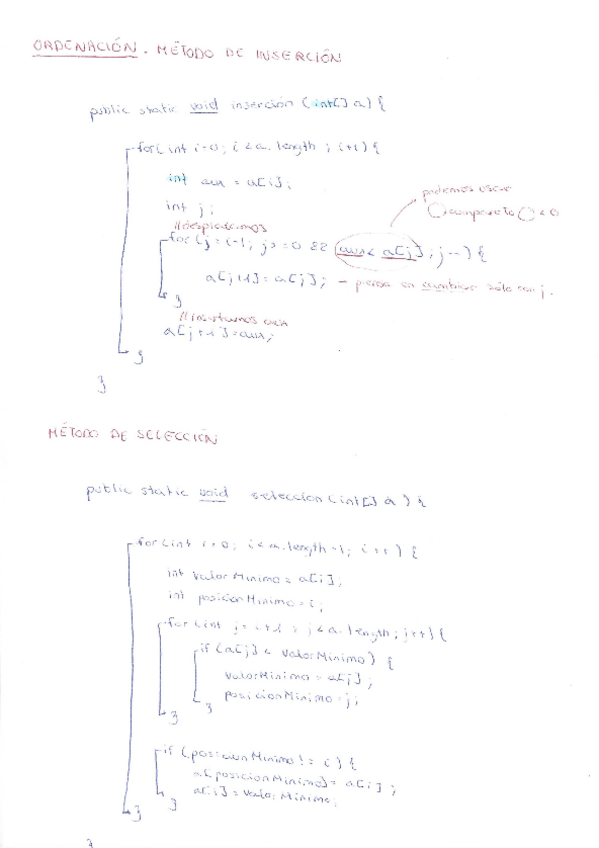 ORDENACIÓN. MÉTODO DE INSERCIÓN
public static void inserción (int[] a) {
for (int i=0; i<a.length; i++) {
int aux = a[i];
int j;
podemos usar
○compareTo ○<0
//desplazamos
for (j=i-1; j>=0 && aux< a[j]; j--) {
a[j+1]=a[j]; – piensa en cambiar sólo con j.
}
//insertamos aux
a[j+1]=aux;
}
}
MÉTODO DE SELECCIÓN
public static void seleccion (int[] a) {
for (int i=0; i<a.length-1; i++) {
int valorMinimo = a[i];
int posicionMinimo = i;
for (int j=i+1; j<a.length; j++) {
if (a[j] < valorMinimo) {
valorMinimo = a[j];
posicionMinimo = j;
}
}
if (posicionMinimo != i) {
a[posicionMinimo] = a[i];
a[i] = valorMinimo;
}
}
}